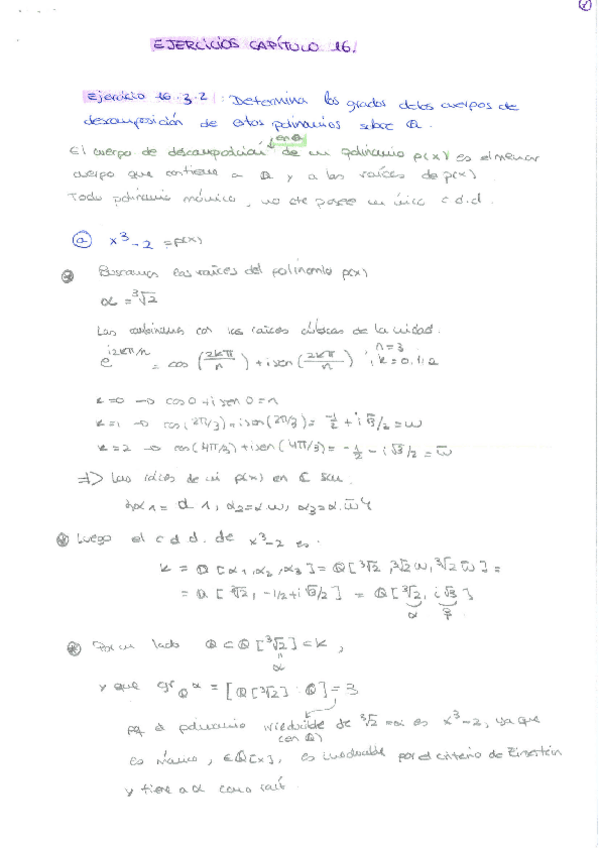 EJERCICIOS CAPÍTULO 16.
Ejercicio 16.3.2: Determina los grados de los cuerpos de
descomposición de estos polinomios sobre Q.
en Q
El cuerpo de descomposición de un polinomio p(x) es el menor
cuerpo que contiene a Q y a las raíces de p(x)
Todo polinomio mónico, no cte posee un único c.d.d.
a) x³-2 = p(x)
Buscamos las raíces del polinomio p(x)
α = ³√2
Las combinamos con las raíces cúbicas de la unidad.
e^{i2kπ/n} = cos (2kπ/n) + i sen (2kπ/n) ; n=3 k=0,1,2
k=0 → cos 0 + i sen 0 = 1
k=1 → cos(2π/3) + i sen(2π/3) = -1/2 + i√3/2 = w
k=2 → cos(4π/3) + i sen(4π/3) = -1/2 - i√3/2 = w̄
⇒ Las raíces de mi p(x) en C son
α1 = α·1, α2 = α·w, α3 = α·w̄
Luego el c.d.d. de x³-2 es:
K = Q[α1, α2, α3] = Q[³√2, ³√2w, ³√2w̄] =
= Q[³√2, -1/2+i√3/2] = Q[³√2, i√3]
α
Por un lado Q ⊂ Q[³√2] ⊂ K,
α
y que gr_Q α = [Q[³√2] : Q] = 3
pq el polinomio irreducible de ³√2 = α es x³-2, ya que
(en Q)
es mónico, ∈ Q[x], es irreducible por el criterio de Einsestein
y tiene a α como raíz.